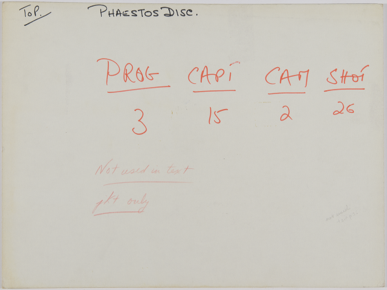 TOP. PHAESTOS DISC.
PROG CAPT CAM SHOT
3 15 2 26
Not used in text
pkt only